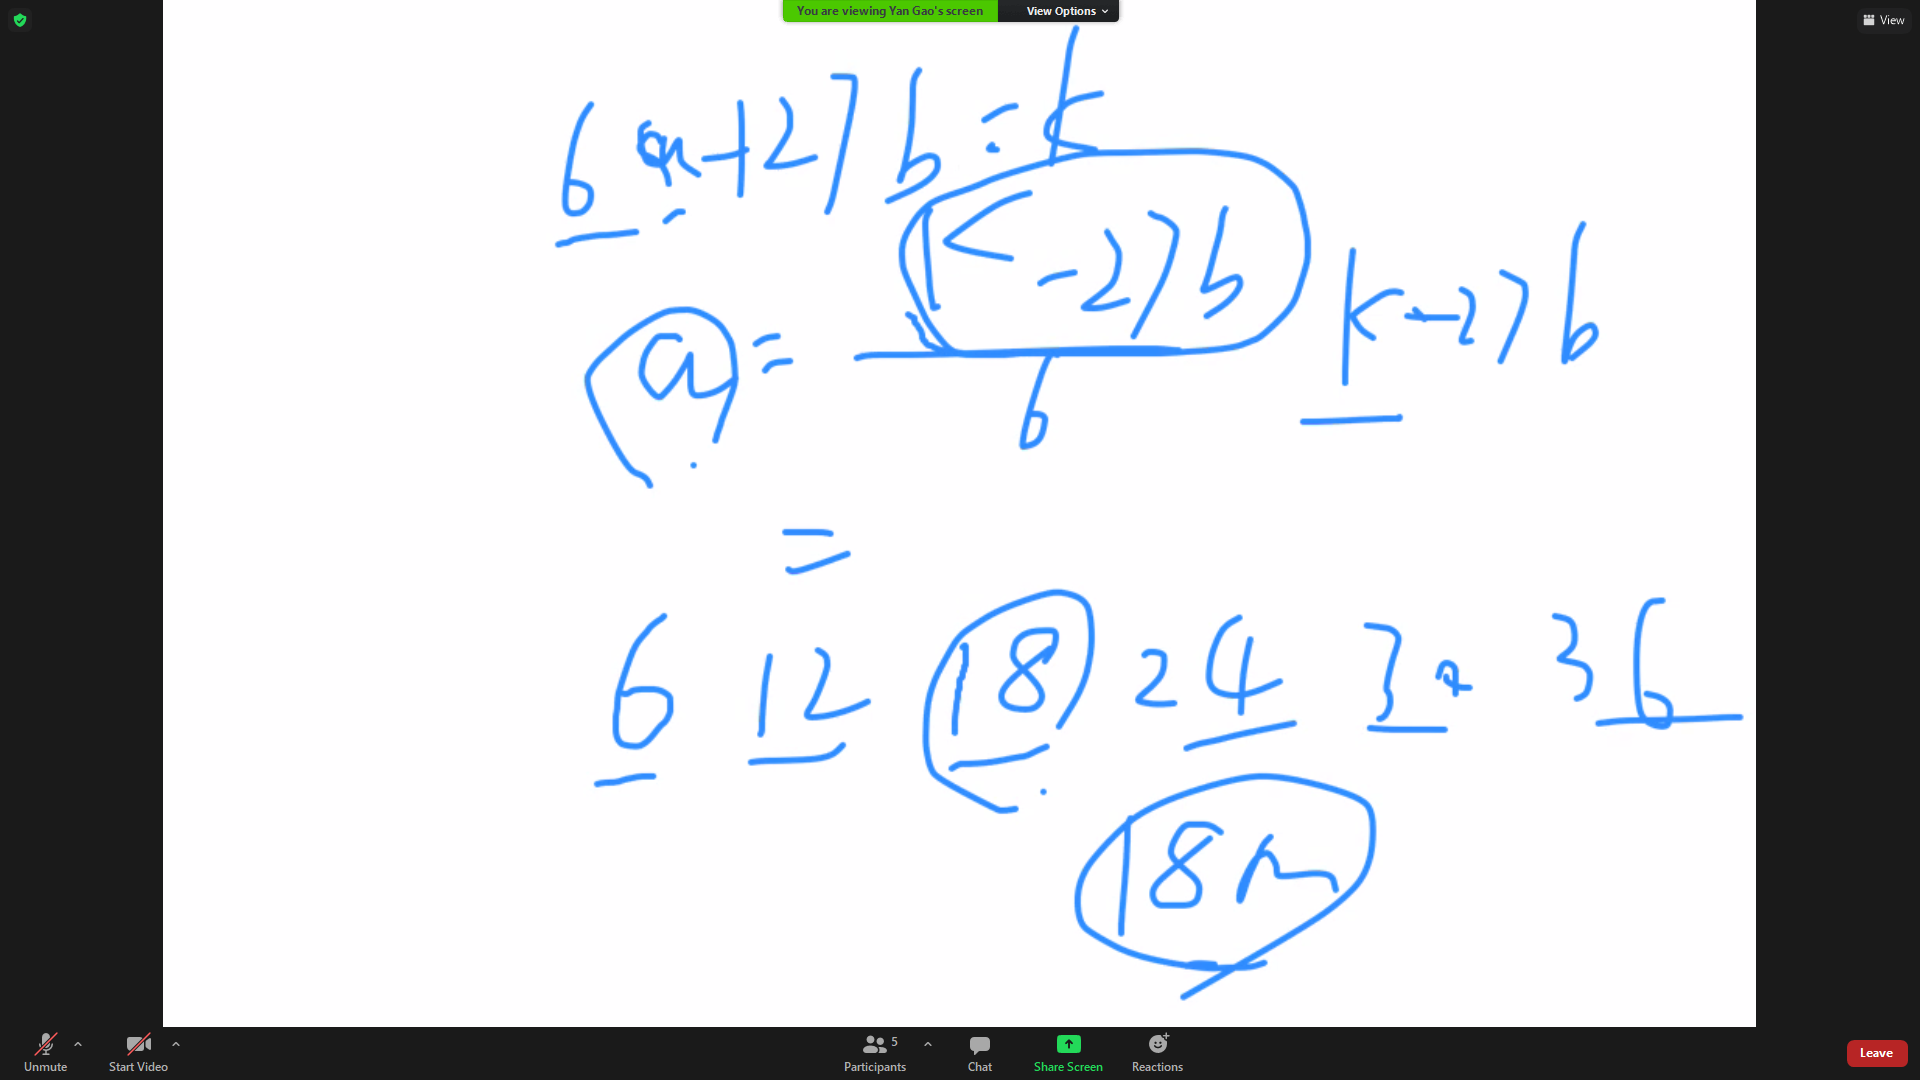 You are viewing Yan Gao's screen
View Options
View
6a+27b=k
k-27b
a=
6
k-27b
=
6 12 18 24 30 36
18m
Unmute
Start Video
Participants
5
Chat
Share Screen
Reactions
Leave